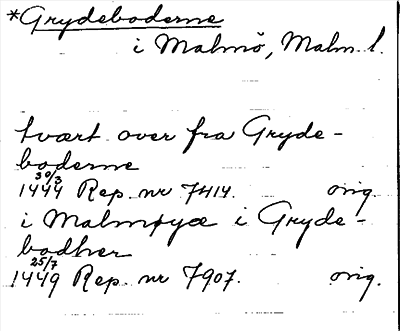 *Grydeboderne
i Malmö, Malm. l.
tvært over fra Gryde-
boderne
30/3
1444 Rep. nr 7414. orig.
i Malmøyæ i Gryde-
bodher
25/7
1449 Rep. nr 7907. orig.